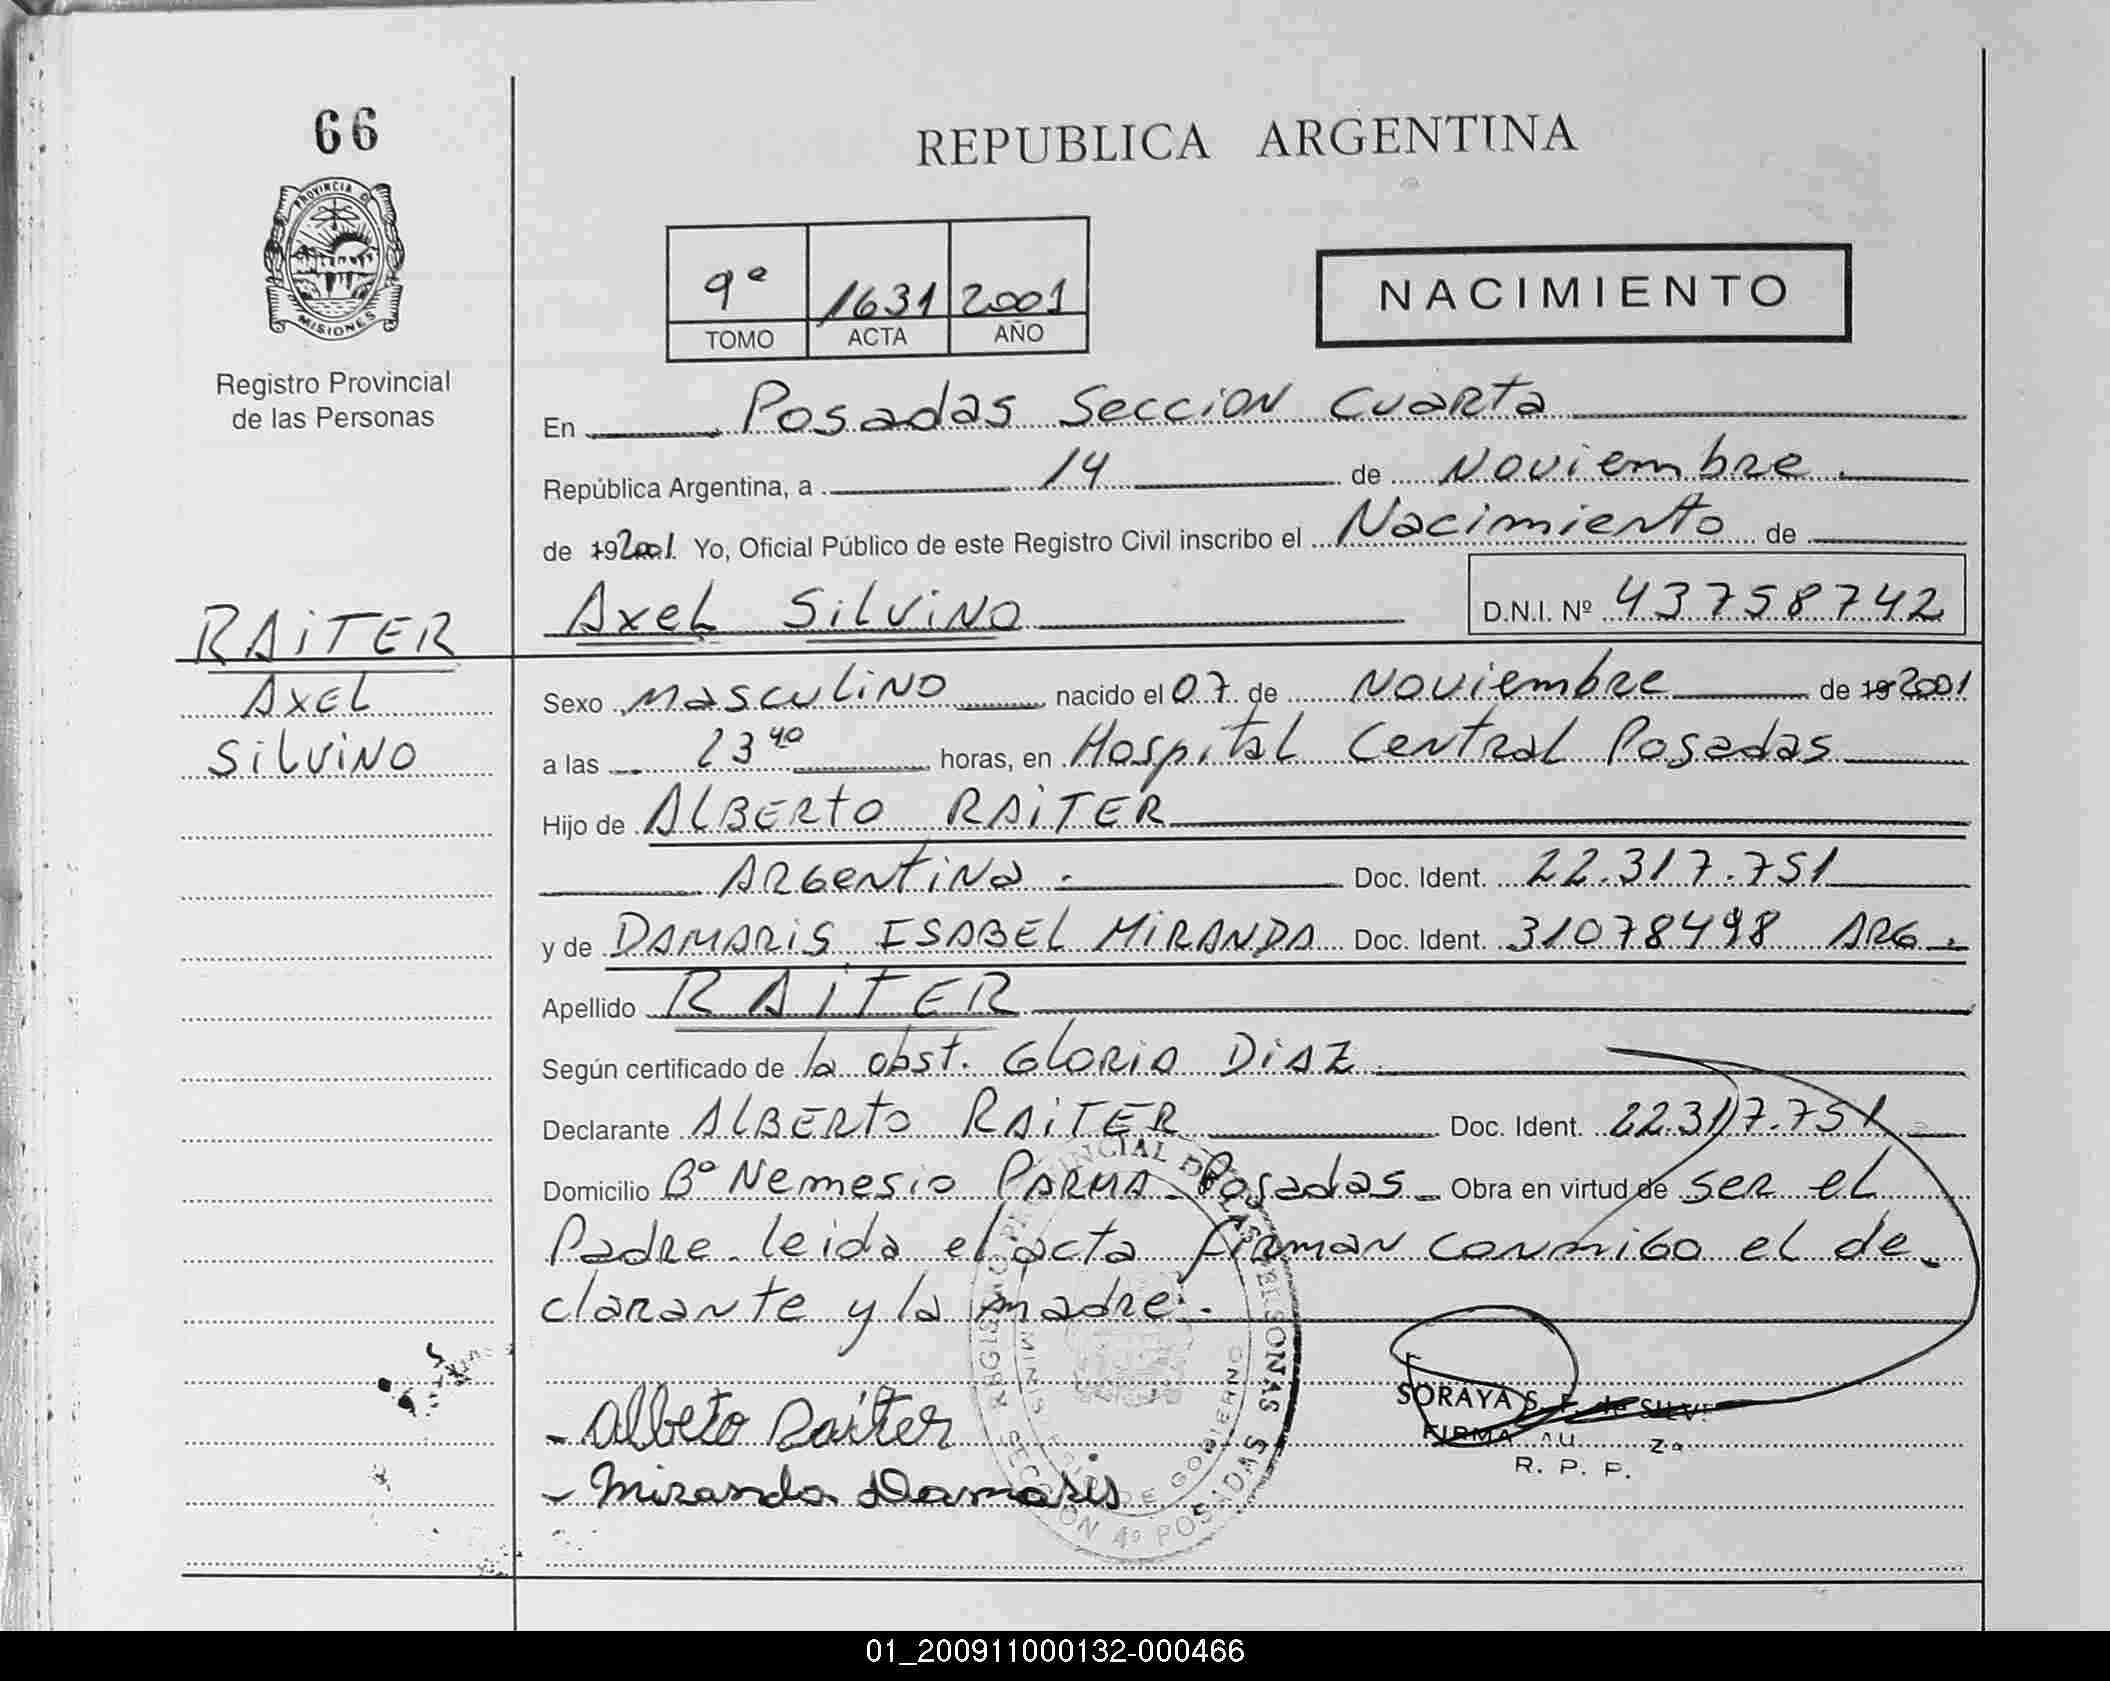 66
REPUBLICA ARGENTINA
PROVINCIA D
MISIONES
Registro Provincial
de las Personas
9ª 1631 2001
TOMO ACTA AÑO
NACIMIENTO
En Posadas Seccion Cuarta
República Argentina, a 14 de Noviembre.
de 192001. Yo, Oficial Público de este Registro Civil inscribo el Nacimiento de
Axel Silvino D.N.I. Nº 43758742
RAITER
AXEL
SILVINO
Sexo Masculino nacido el 07 de Noviembre de 19 2001
a las 23 40 horas, en Hospital Central Posadas
Hijo de ALBERTO RAITER
ARGENTINA. Doc. Ident. 22.317.751
y de DAMARIS ISABEL MIRANDA Doc. Ident. 31078498 ARG.
Apellido RAITER
Según certificado de la obst. GLORIA DIAZ
Declarante ALBERTO RAITER Doc. Ident. 22.317.751
Domicilio Bº Nemesio PARMA - Posadas - Obra en virtud de ser el
Padre. leida el acta firman conmigo el de-
clarante y la madre.-
- Albeto Raiter
- Miranda Damaris
SECCION 4º POSADAS
DE GOBIERNO
SORAYA S. F. de SILV
FIRMA AU
R. P. P.
01_200911000132-000466